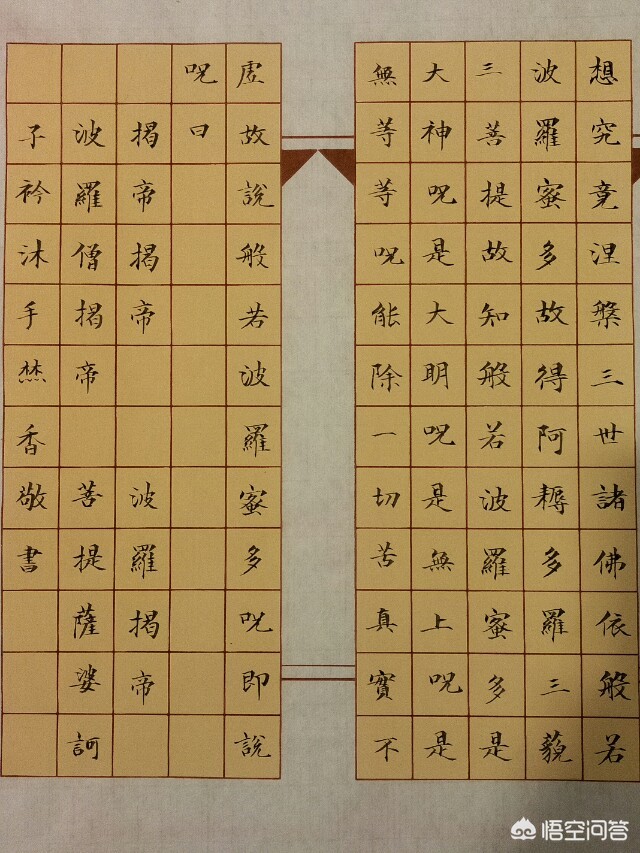 想究竟涅槃三世諸佛依般若
波羅蜜多故得阿耨多羅三藐
三菩提故知般若波羅蜜多是
大神呪是大明呪是無上呪是
無等等呪能除一切苦真實不
虛故說般若波羅蜜多呪即說
呪曰
揭帝揭帝 波羅揭帝
波羅僧揭帝 菩提薩婆訶
子衿沐手焚香敬書
悟空问答